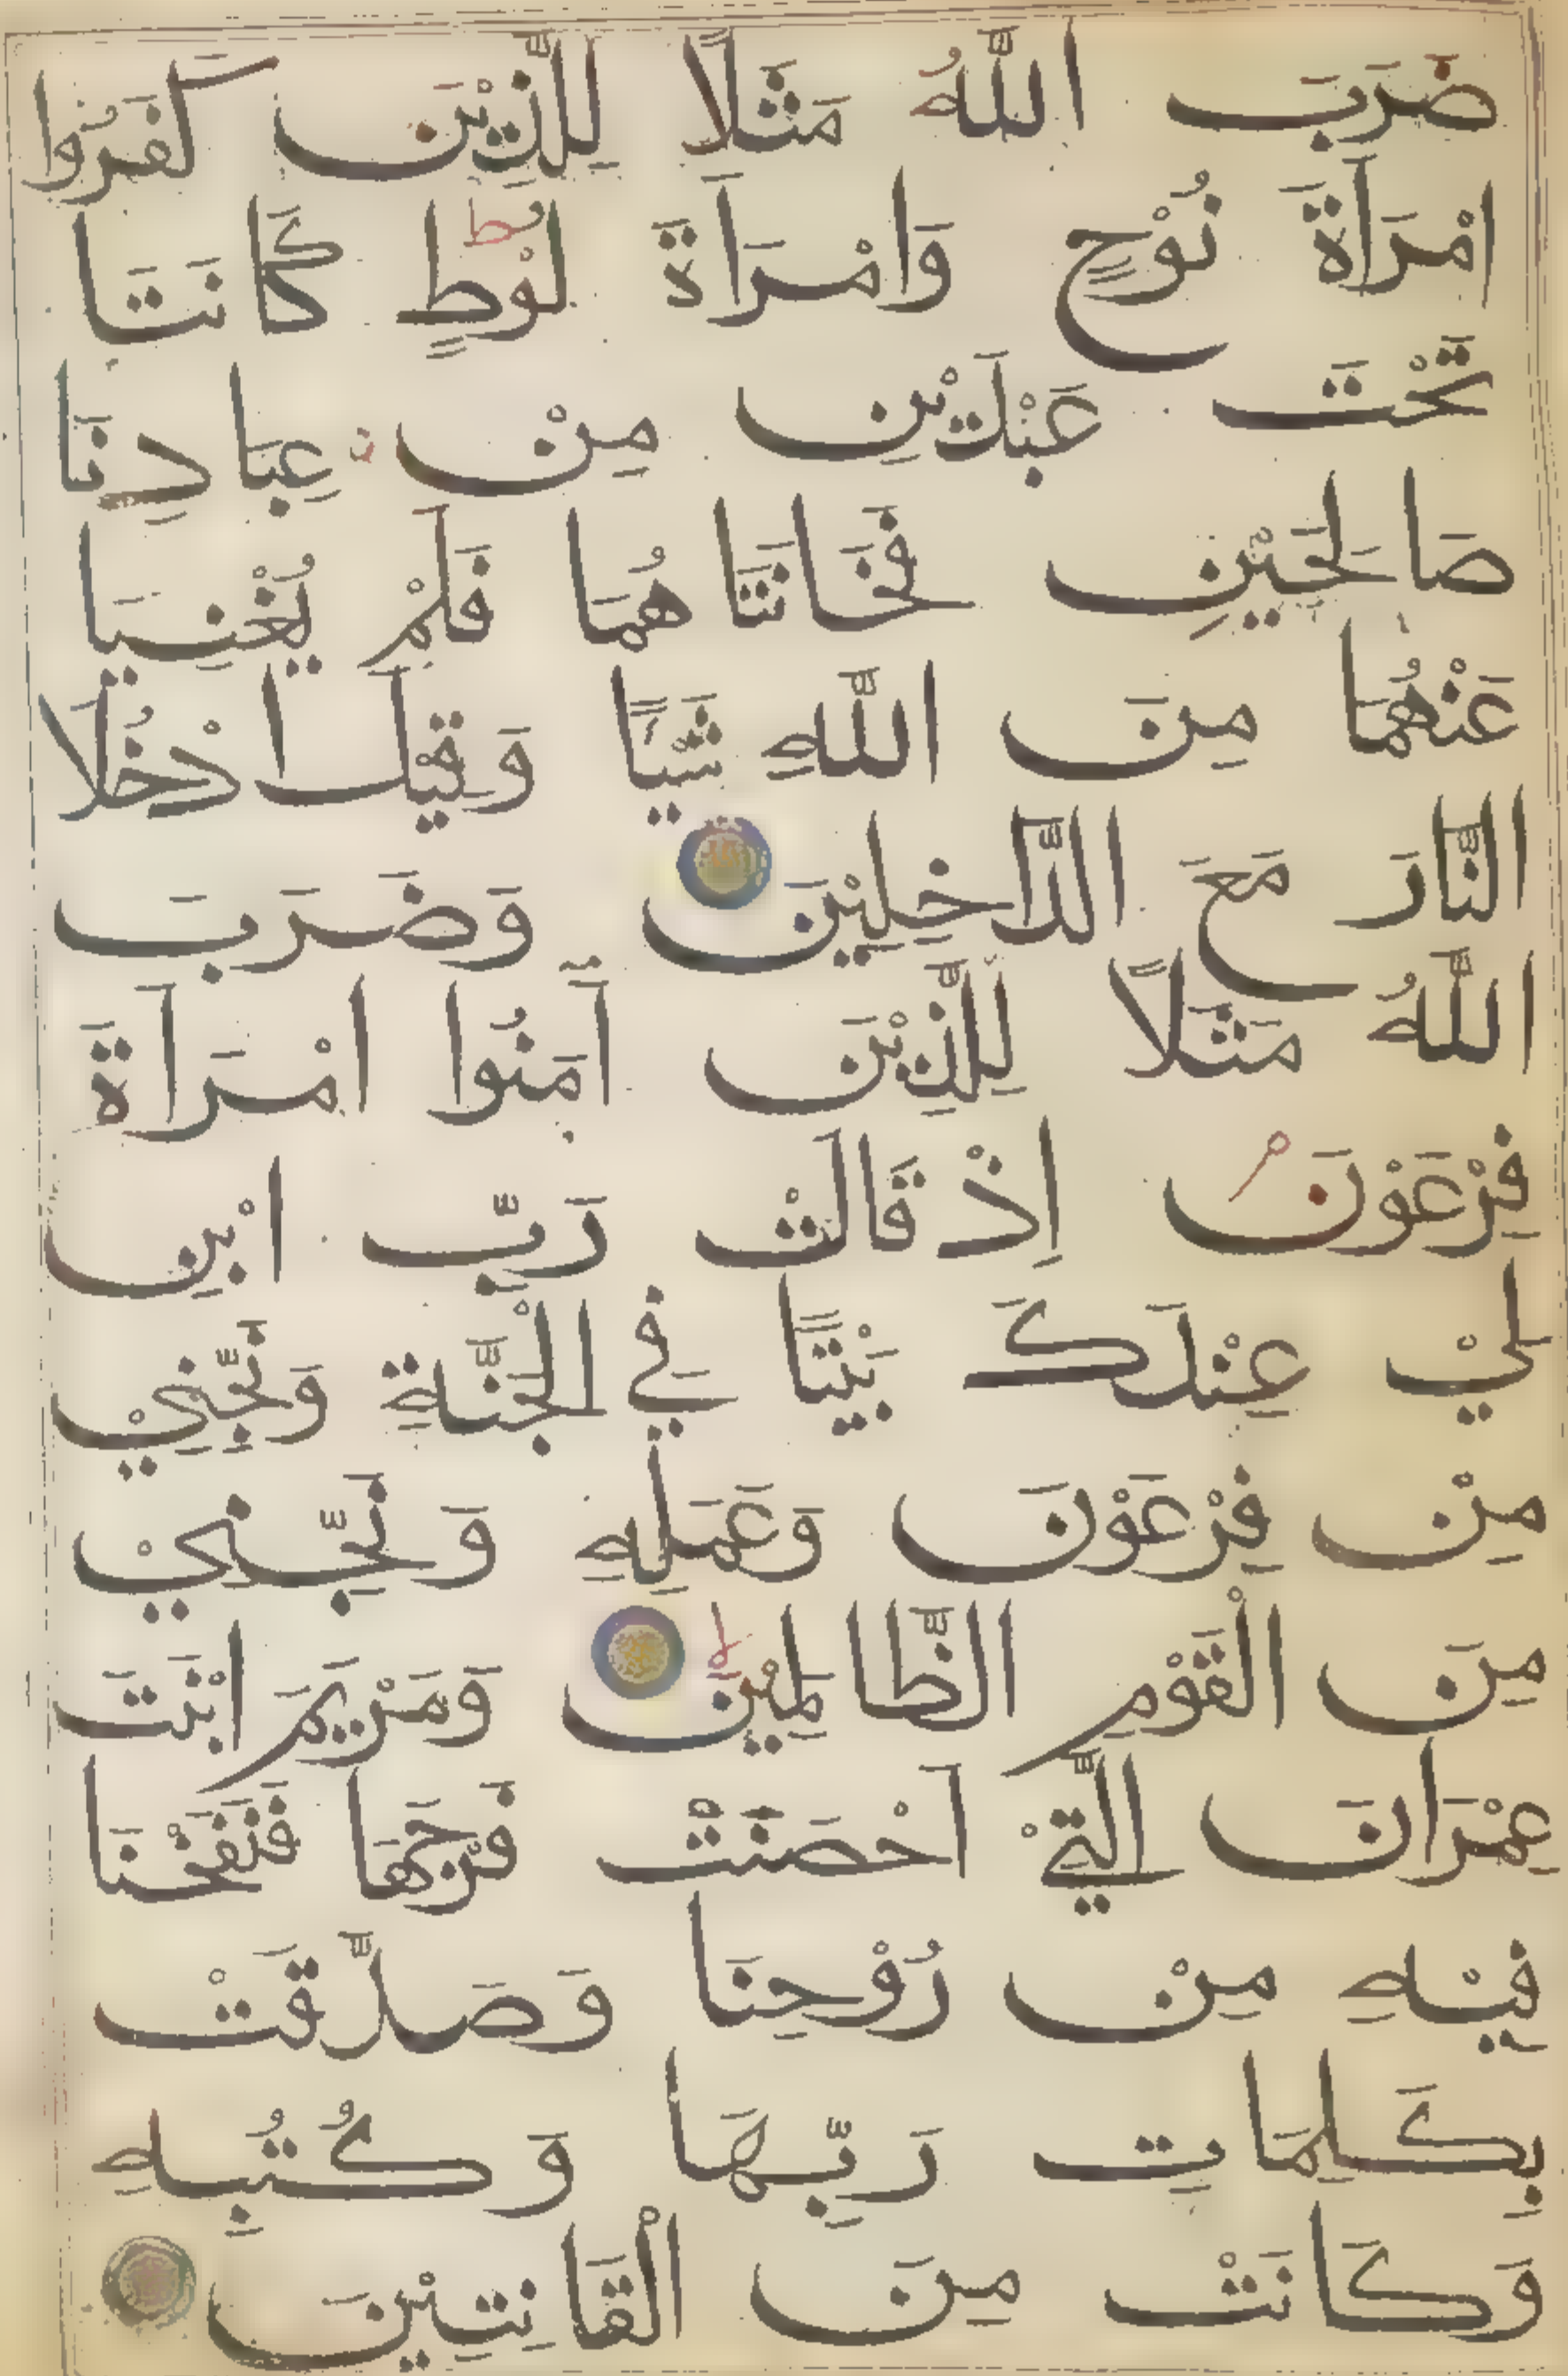 ضَرَبَ اللَّهُ مَثَلًا لِلَّذِيْنَ كَفَرُوا
امْرَاَةَ نُوْحٍ وَامْرَاَةَ لُوْطٍ كَانَتَا
تَحْتَ عَبْدَيْنِ مِنْ عِبَادِنَا
صَالِحَيْنِ فَخَانَتَاهُمَا فَلَمْ يُغْنِيَا
عَنْهُمَا مِنَ اللَّهِ شَيْـًٔا وَقِيْلَ ادْخُلَا
النَّارَ مَعَ الدَّاخِلِيْنَ وَضَرَبَ
اللَّهُ مَثَلًا لِلَّذِيْنَ آمَنُوا امْرَاَةَ
فِرْعَوْنَ اِذْ قَالَتْ رَبِّ ابْنِ
لِيْ عِنْدَكَ بَيْتًا فِي الْجَنَّةِ وَنَجِّنِيْ
مِنْ فِرْعَوْنَ وَعَمَلِهِ وَنَجِّنِيْ
مِنَ الْقَوْمِ الظَّالِمِيْنَ وَمَرْيَمَ ابْنَتَ
عِمْرَانَ الَّتِيْ اَحْصَنَتْ فَرْجَهَا فَنَفَخْنَا
فِيْهِ مِنْ رُوْحِنَا وَصَدَّقَتْ
بِكَلِمَاتِ رَبِّهَا وَكُتُبِهِ
وَكَانَتْ مِنَ الْقَانِتِيْنَ